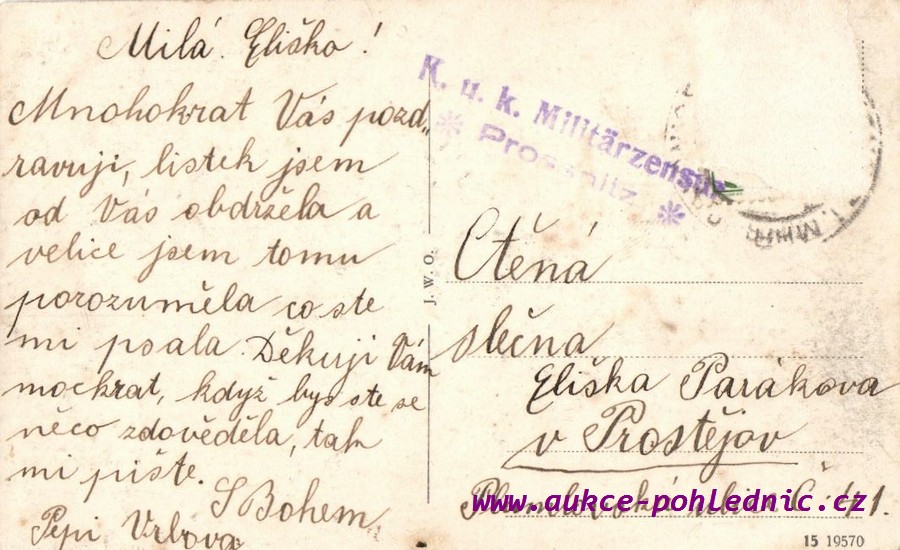 Milá Eliško!
Mnohokrat Vás pozd„
ravuji, listek jsem
od Vás obdržela a
velice jsem tomu
porozuměla co ste
mi psala. Děkuji Vám
mockrat, když bys ste se
něco zdověděla, tak
mi pište.
S Bohem
Pepi Vrbova
K. u. k. Militärzensur
* Prossnitz *
J. W. O.
Ctěná
slečna
Eliška Parákova
v Prostějov
Č 41.
www.aukce-pohlednic.cz
15 19570